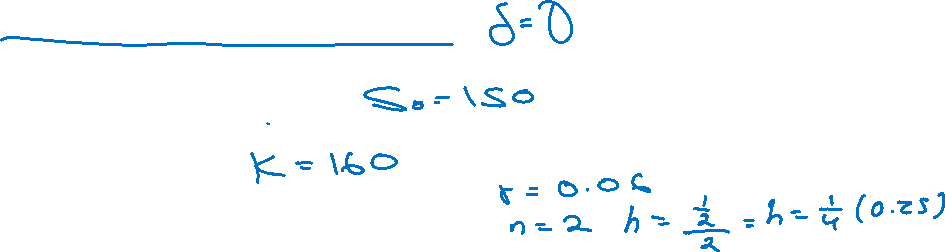 δ=0
S₀=150
K=160
r=0.06
n=2 h=½/2=h=¼(0.25)